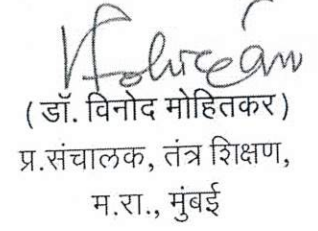 ( डॉ. विनोद मोहितकर )
प्र.संचालक, तंत्र शिक्षण,
म.रा., मुंबई